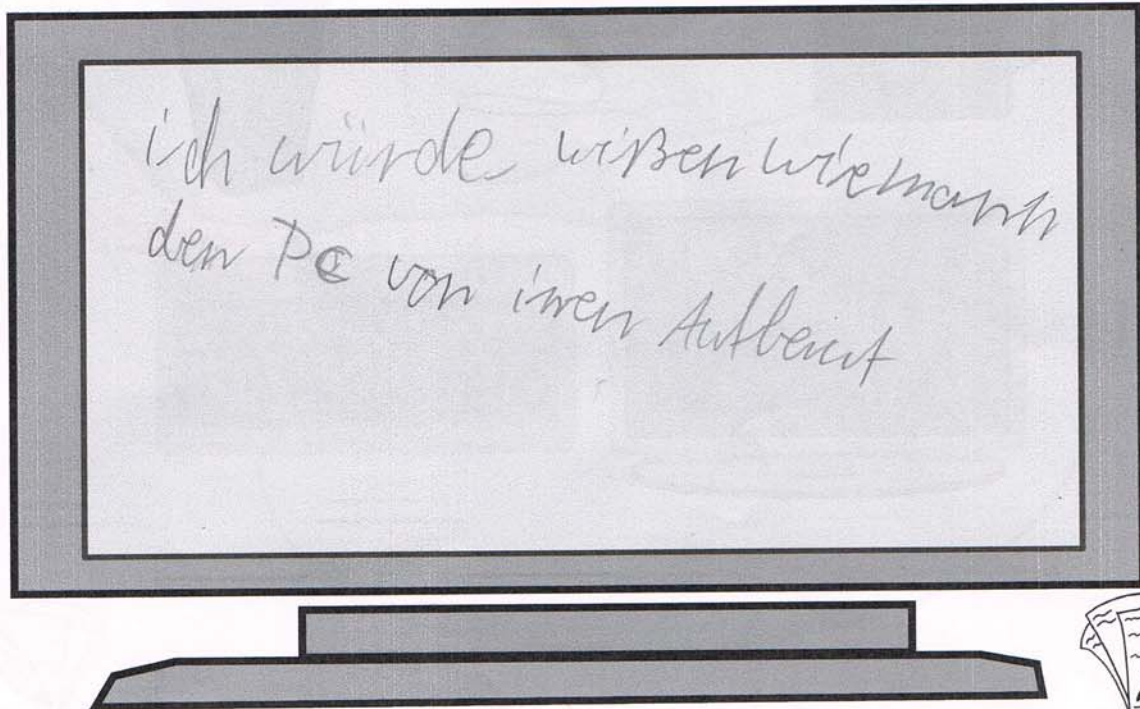 ich würde wißen wiemann
den PC von inen Aufbeut